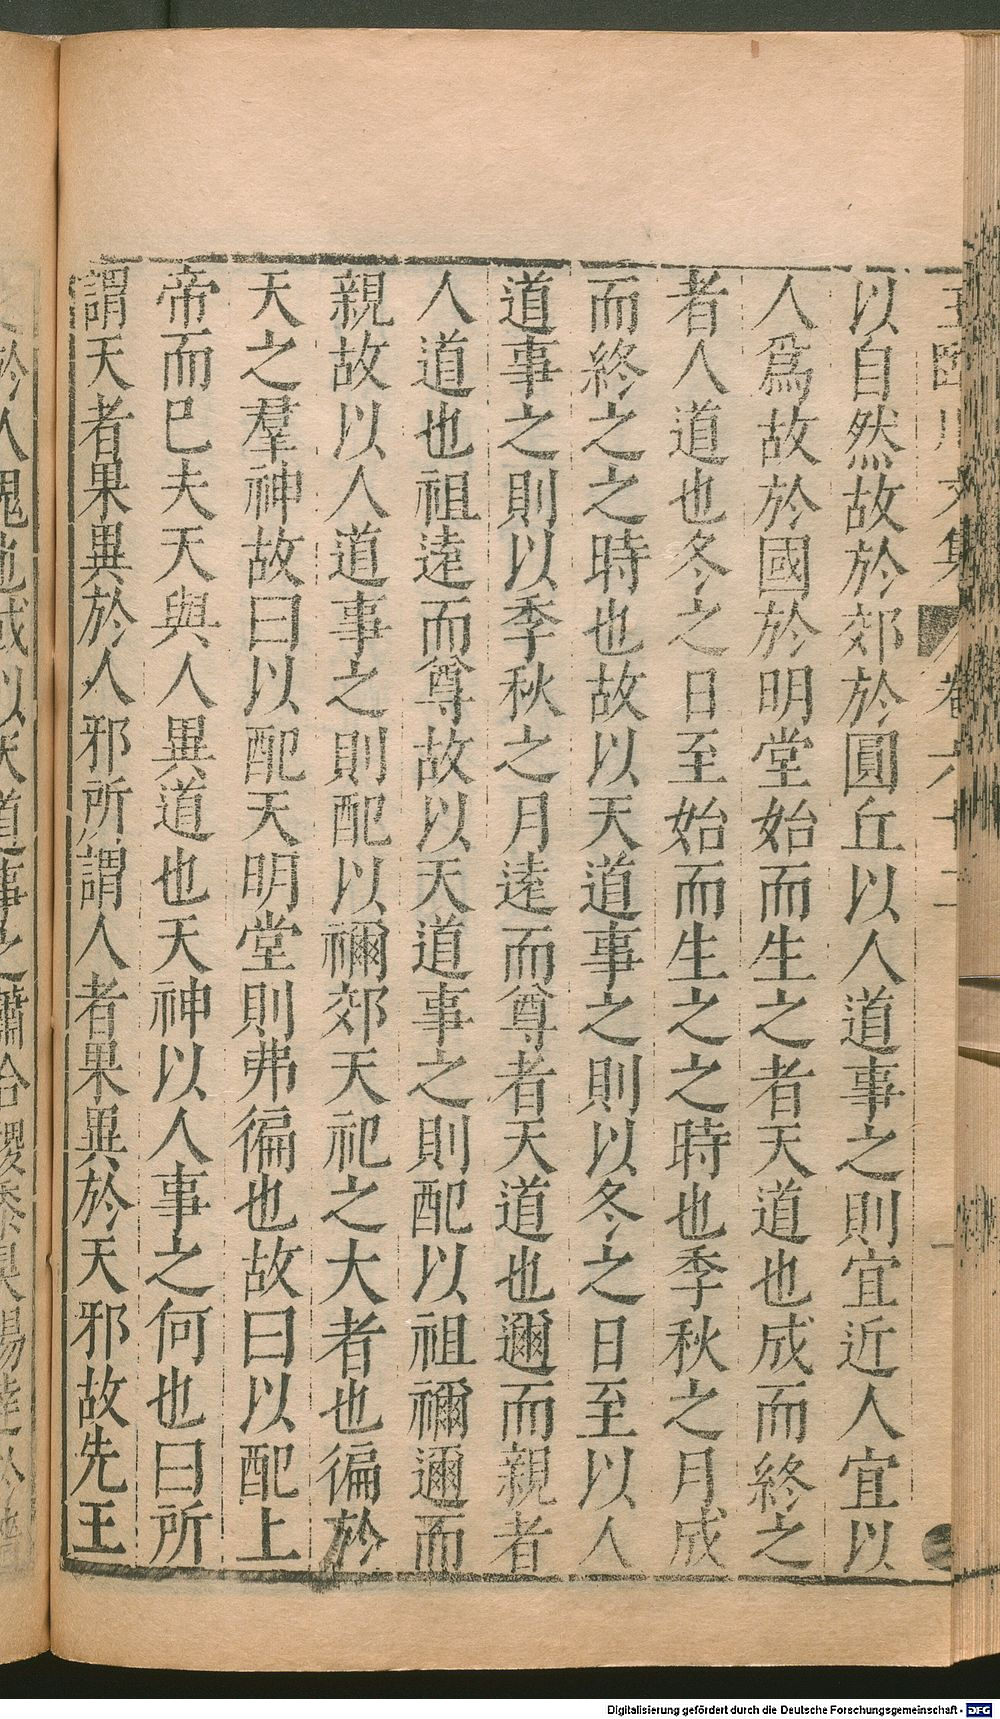 以自然故於郊於圓丘以人道事之則宜近人宜以
人爲故於國於明堂始而生之者天道也成而終之
者人道也冬之日至始而生之之時也季秋之月成
而終之之時也故以天道事之則以冬之日至以人
道事之則以季秋之月遠而尊者天道也邇而親者
人道也祖遠而尊故以天道事之則配以祖禰邇而
親故以人道事之則配以禰郊天祀之大者也徧於
天之羣神故曰以配天明堂則弗徧也故曰以配上
帝而巳夫天與人異道也天神以人事之何也曰所
謂天者果異於人邪所謂人者果異於天邪故先王
於人鬼地或以天道事之蕭合稷黍臭陽達於牆
Digitalisierung gefördert durch die Deutsche Forschungsgemeinschaft - DFG